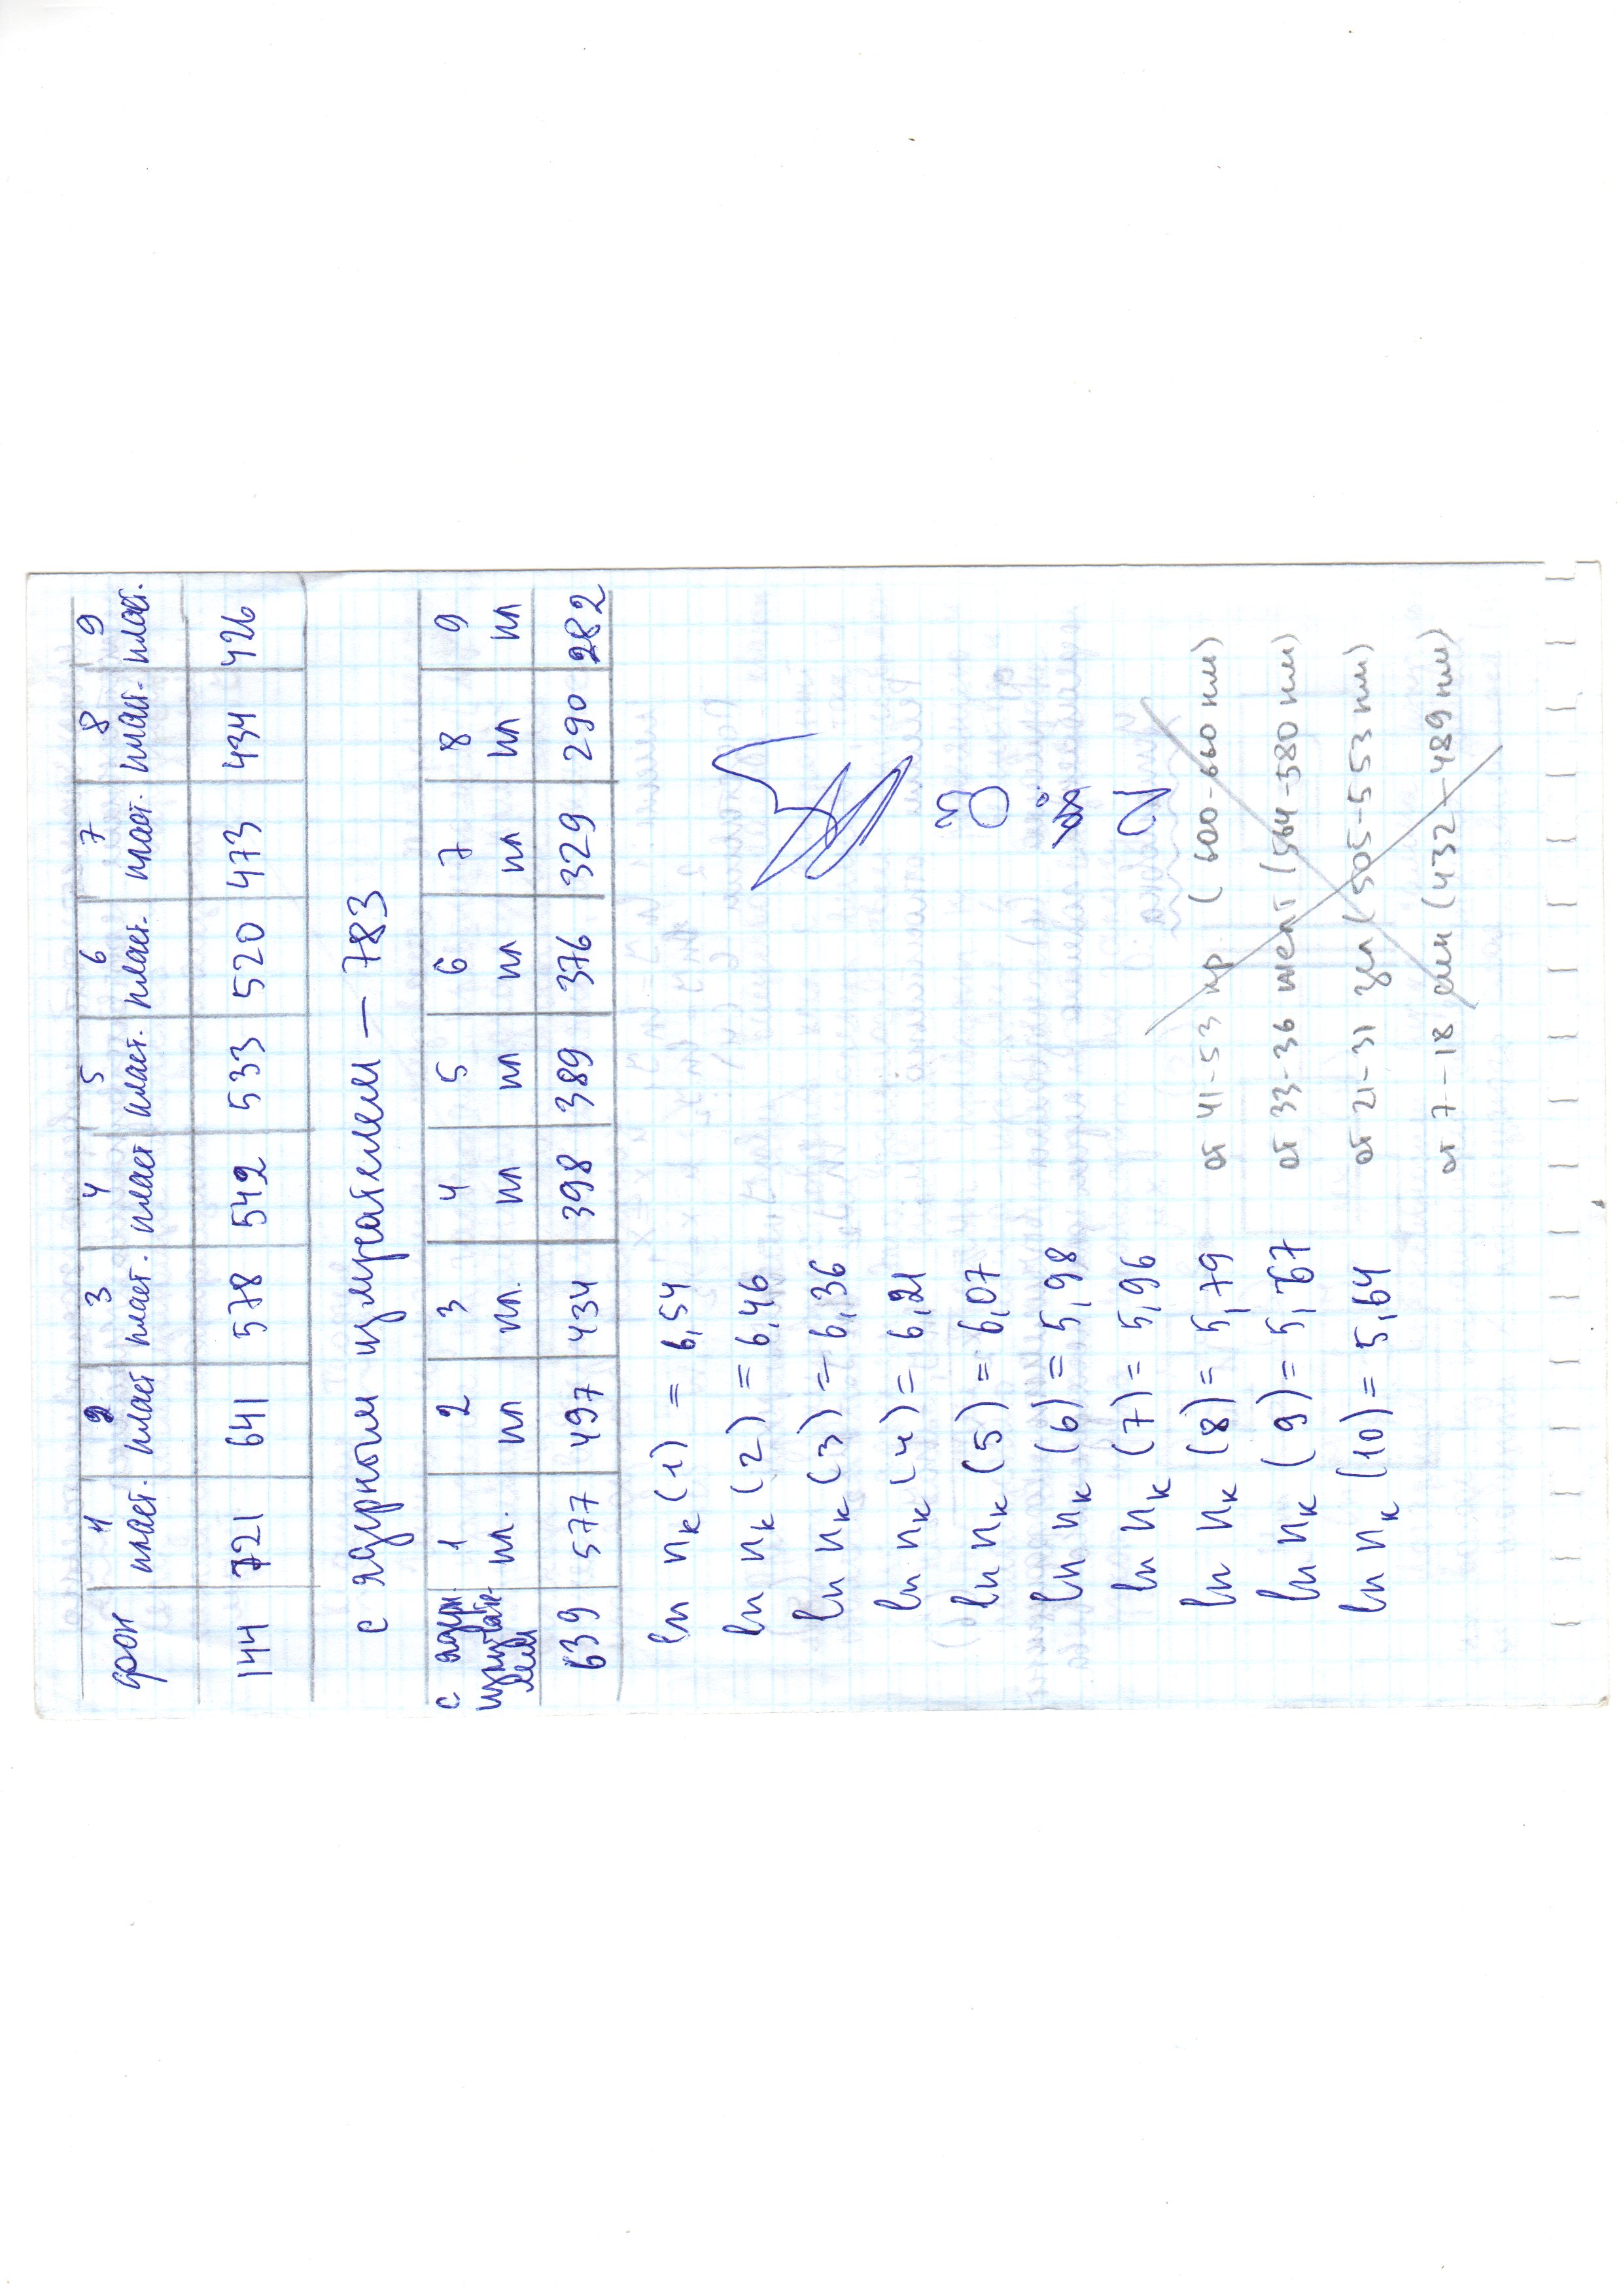 фон 1 пласт. 2 пласт 3 пласт. 4 пласт 5 пласт. 6 пласт. 7 пласт. 8 пласт. 9 пласт.
144 721 641 578 542 533 520 473 434 426
с ядерным излучателем — 783
с ядерн. излучате-лем 1 пл. 2 пл 3 пл. 4 пл 5 пл 6 пл 7 пл 8 пл 9 пл
639 577 497 434 398 389 376 329 290 282
ln nк (1) = 6,54
ln nк (2) = 6,46
ln nк (3) = 6,36
ln nк (4) = 6,21
ln nк (5) = 6,07
ln nк (6) = 5,98
ln nк (7) = 5,96
ln nк (8) = 5,79
ln nк (9) = 5,67
ln nк (10) = 5,64
03
от 41-53 кр (600-660 нм)
от 33-36 желт (564-580 нм)
от 21-31 зел (505-553 нм)
от 7-18 син (432-489 нм)